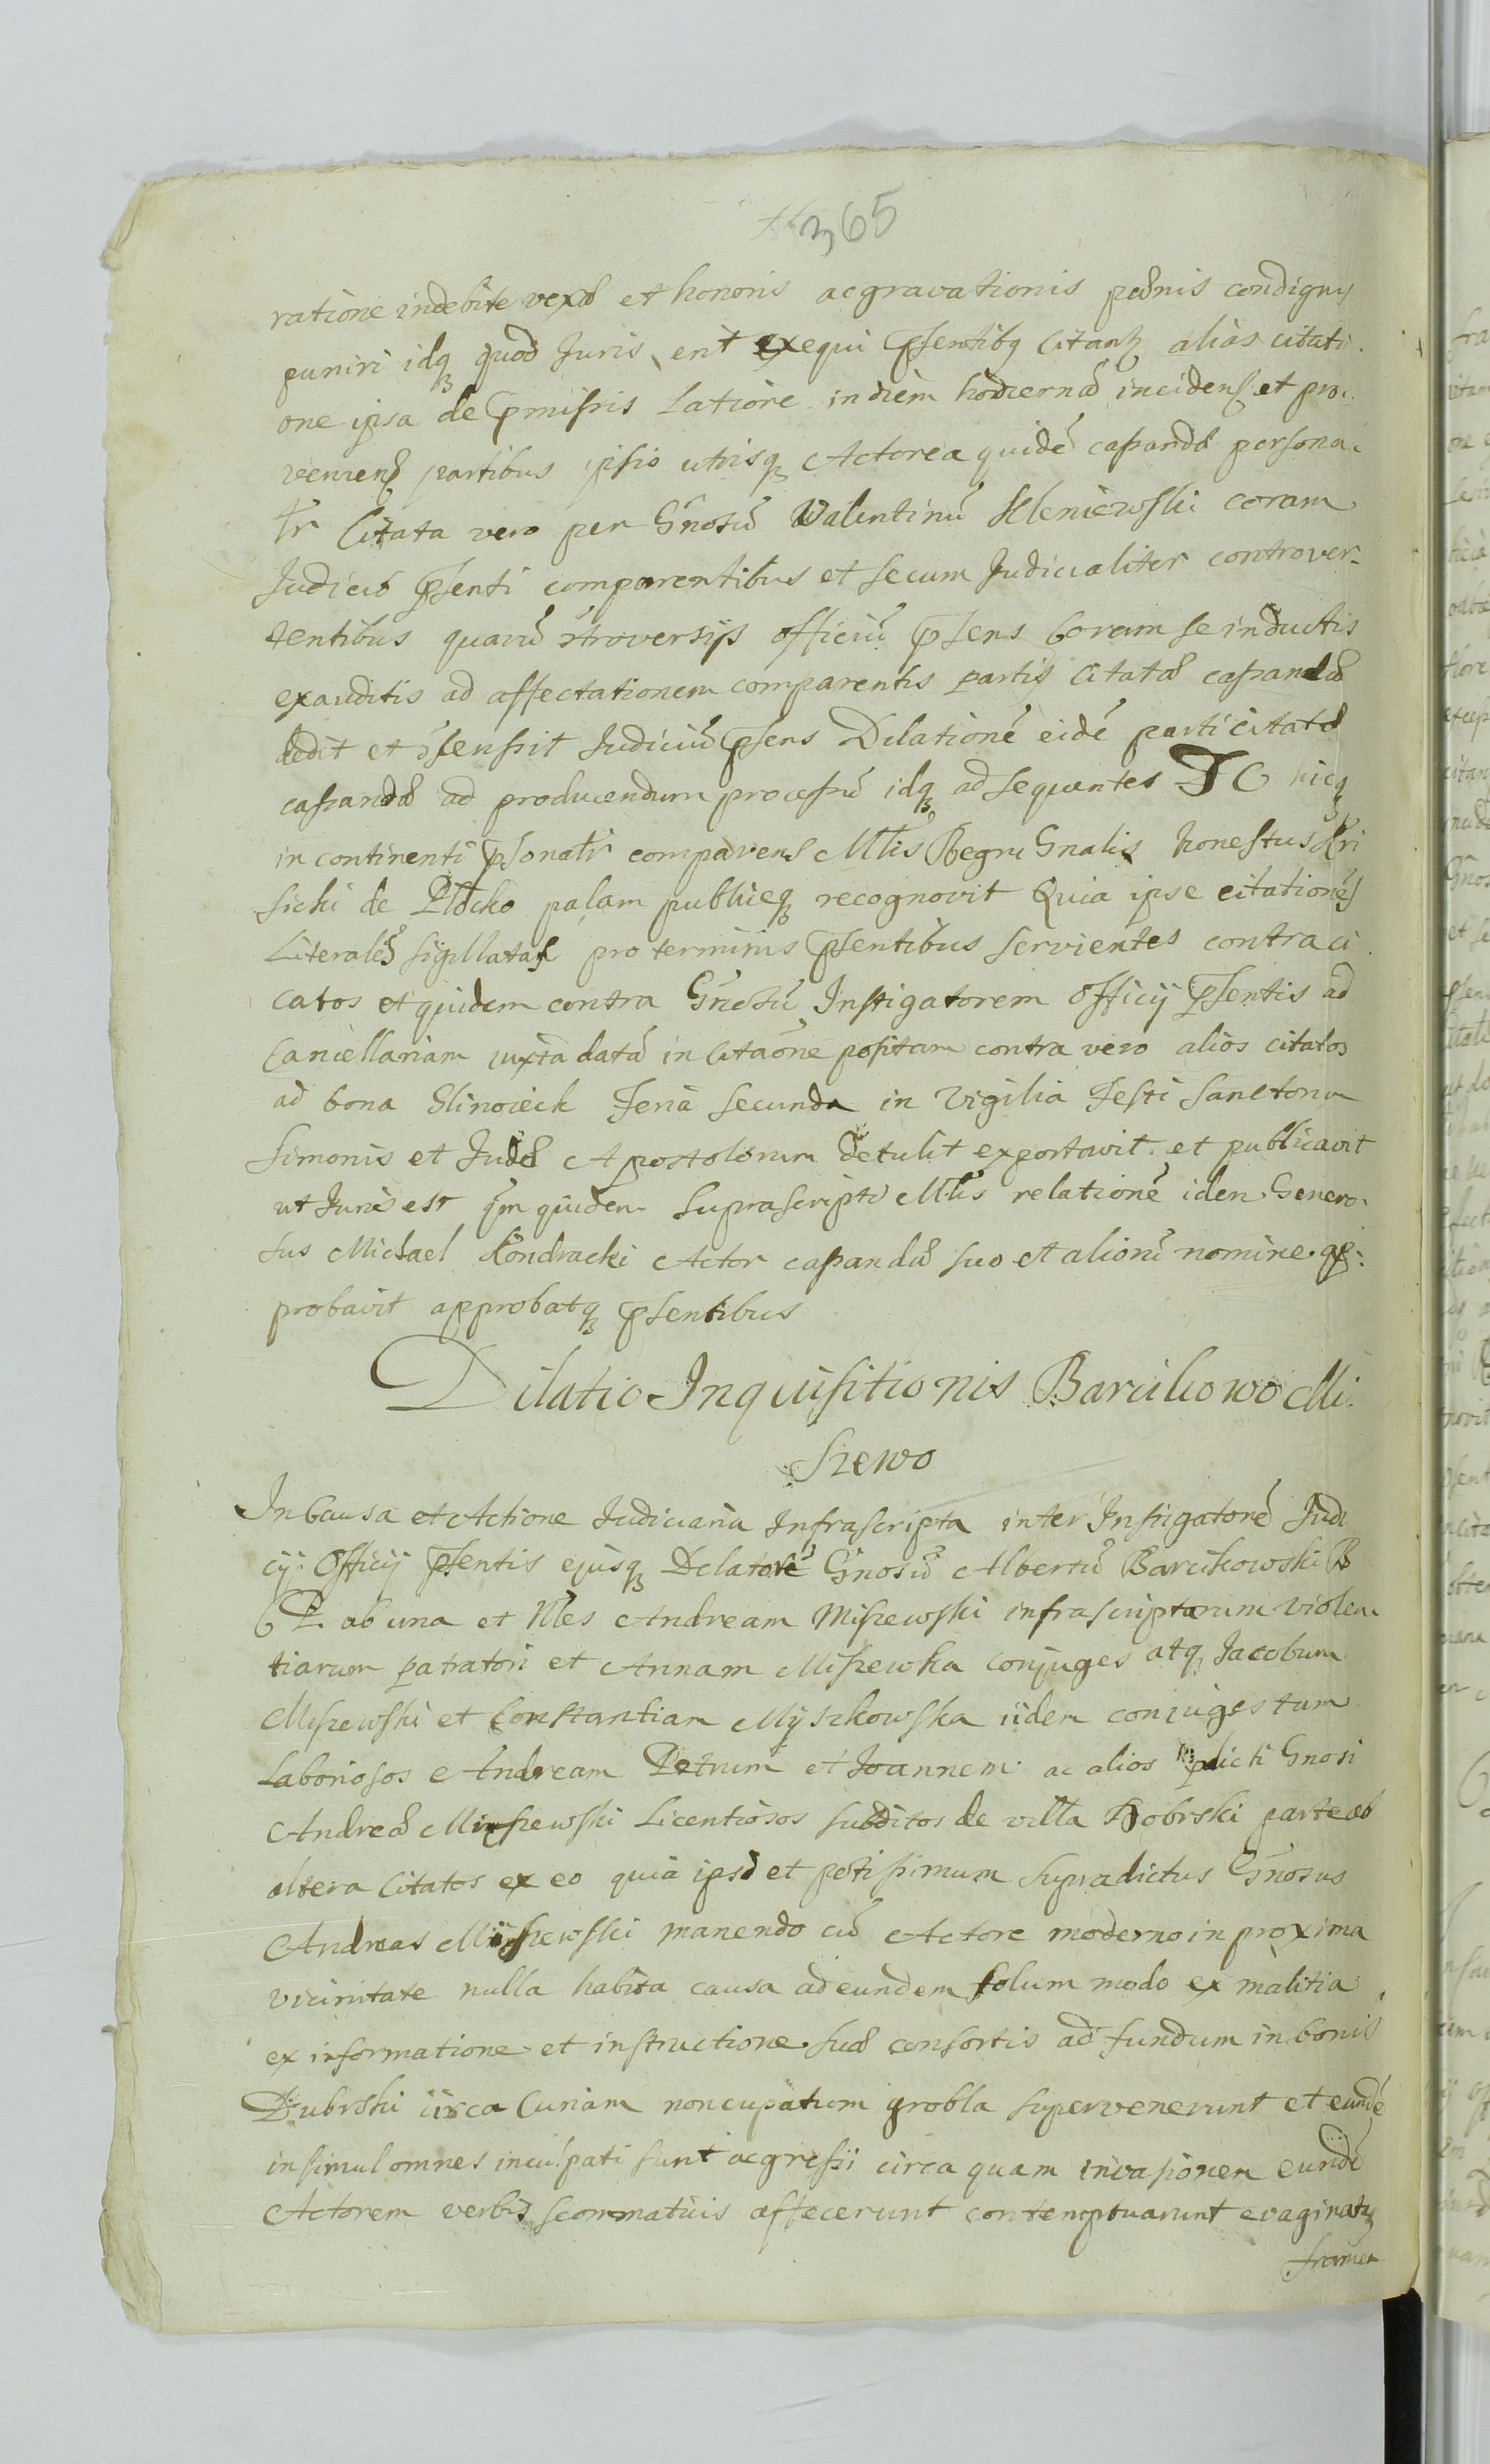 365
ratione indebite vexae et honoris acgravationis paenis condignis
puniri idq quod Juris erit exequi psentibq Citanz alias citati
one ipsa de pmissis Latiore in diem hodierna incidens et pro
veniens partibus ipsis utrisq Actorea quide capandae persona
tr Citata vero per Gnosu Valentinu Kleniewski coram
Judicio psenti comparentibus et secum Judicialiter controver
tentibus quaru ctroversijs officiu psens Coram se inductis
exauditis ad affectationem comparentis partis Citatae capandae
dedit et csensit Judiciu psens Dilatione eide parti citatae
capandae ad producendum processu idq ad sequentes TC hicq
in continenti psonatr comparens Mtis Regni Gnalis honestus Kri
sicki de Plocko palam publiceq recognovit Quia ipse citationes
Literales sigillatas pro terminis psentibus servientes contra ci
tatos et quidem contra Gnosu Instigatorem Officij psentis ad
Cancellariam iuxta data in Citaone positam contra vero alios citatos
ad bona Glinojeck Feria secunda in Vigilia Festi Sanctoru
Simonis et Judae Apostolorum detulit exportavit et publicavit
ut Juris est qm quidem Suprascripti Mtis relatione idem Genero
sus Michael Kondracki Actor capandae suo et alioru nomine ap
probavit approbatq psentibus
Dilatio Inquisitionis Barcikowo Mi
szewo
In Causa et Actione Judiciaria Infrascripta inter Instigatore Judi
cij Officij psentis ejusq Delatore Gnosu Albertu Barcikowski B
C P. ab una et Nbles Andream Miszewski infrascriptarum violen
tiarum patratori et Annam Miszewska conjuges atq Jacobum
Miszewski et Constantiam Myszkowska iidem conjuges tum
Laboriosos Andream Petrum et Joannem ac alios pdicti Gnosi
Andreae Miszewski Licentiosos subditos de villa Dobrski parte ab
altera Citatos ex eo quia ipsi et potissimum supradictus Gnosus
Andreas Miszewski manendo cu Actore moderno in proxima
vicinitate nulla habita causa ad eundem solum modo ex malitia
ex informatione et instructione suae consortis ad fundum in bonis
Dubrski circa Curiam noncupatum grobla supervenerunt et eunde
insimul omnes inculpati sunt acgressi circa quam invasionem eunde
Actorem verbis scommaticis affecerunt contemptuarunt evaginatis
framea